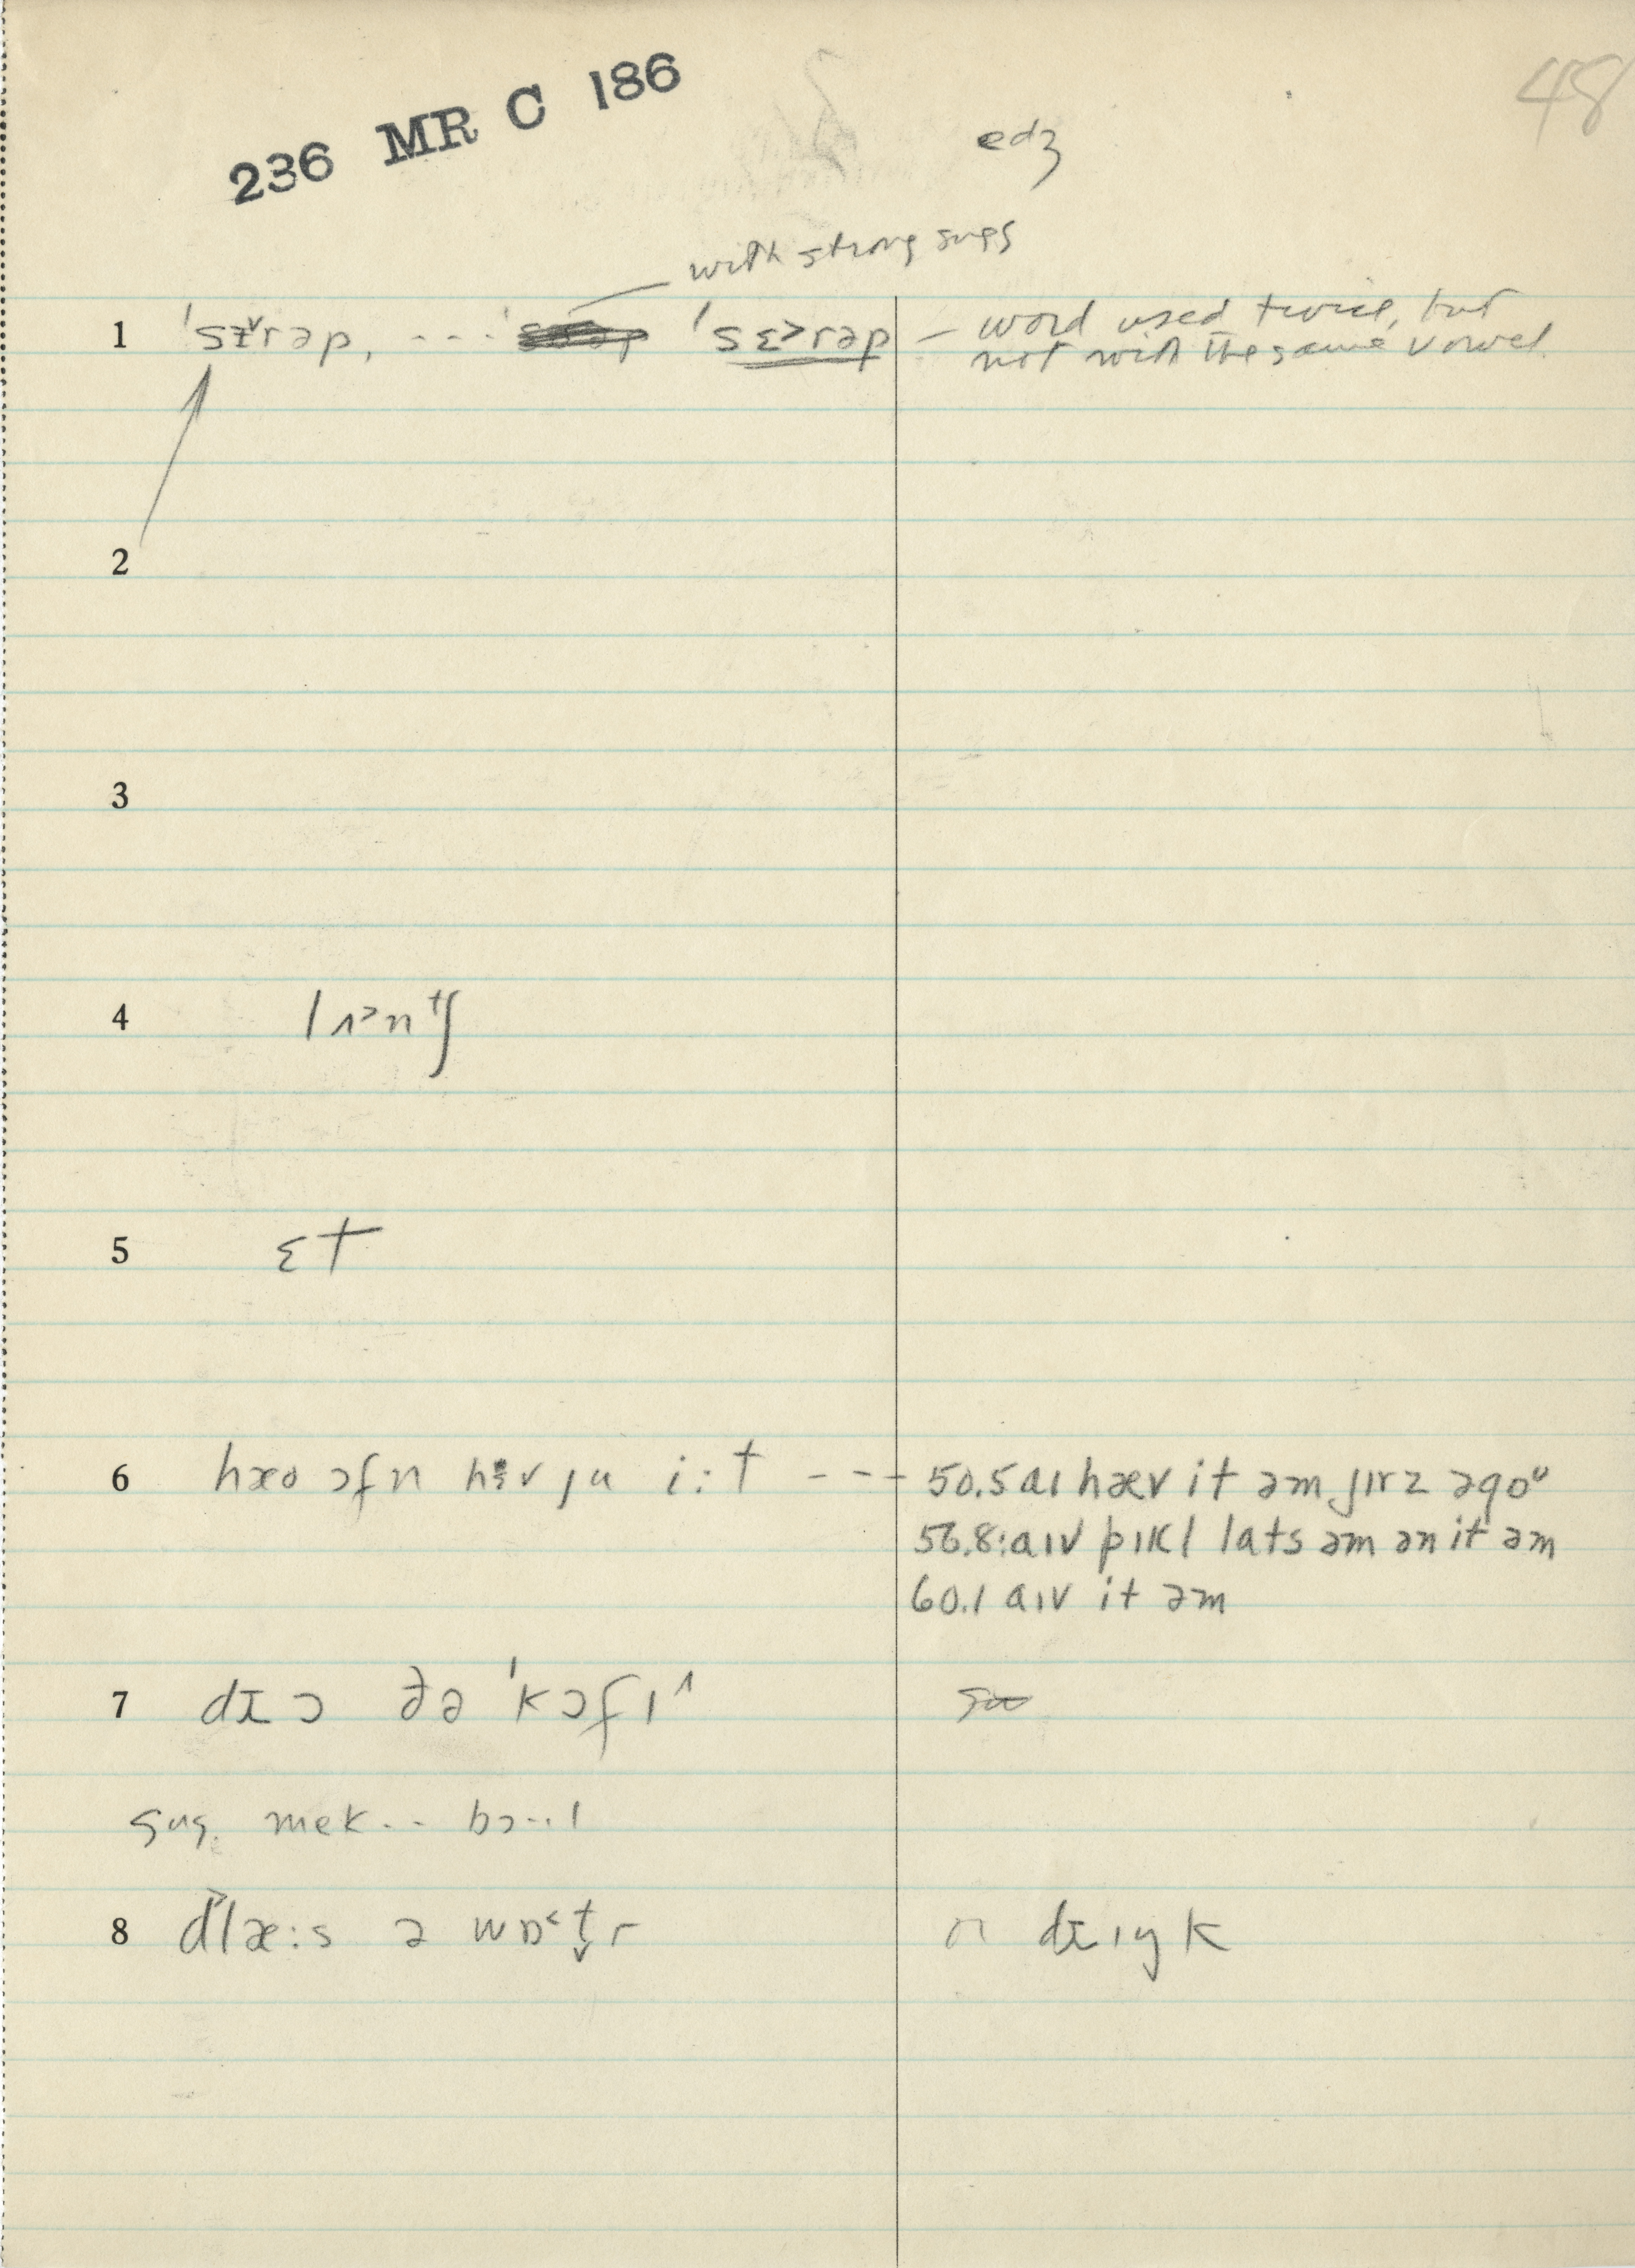 48
236 MR C 186
edʒ
with strong sugs
1 ˈsɨ˅rəp, --- ˈsɛ˃rəp – word used twice, but
not with the same vowel
2
3
4 lʌ˃ntʃ
5 ɛt
6 hæo ɔfn hɛv ju i:t --- 50.5 aɪ hæv it əm jɪrz əgoᶷ
56.8: aɪv pɪkl lats əm ən it əm
60.1 aɪv it əm
7 dɪɔ ðə ˈkɔfɪ˄
sug. mek.. bɔ..l
8 glæ:s ə wɒ˂t̬r